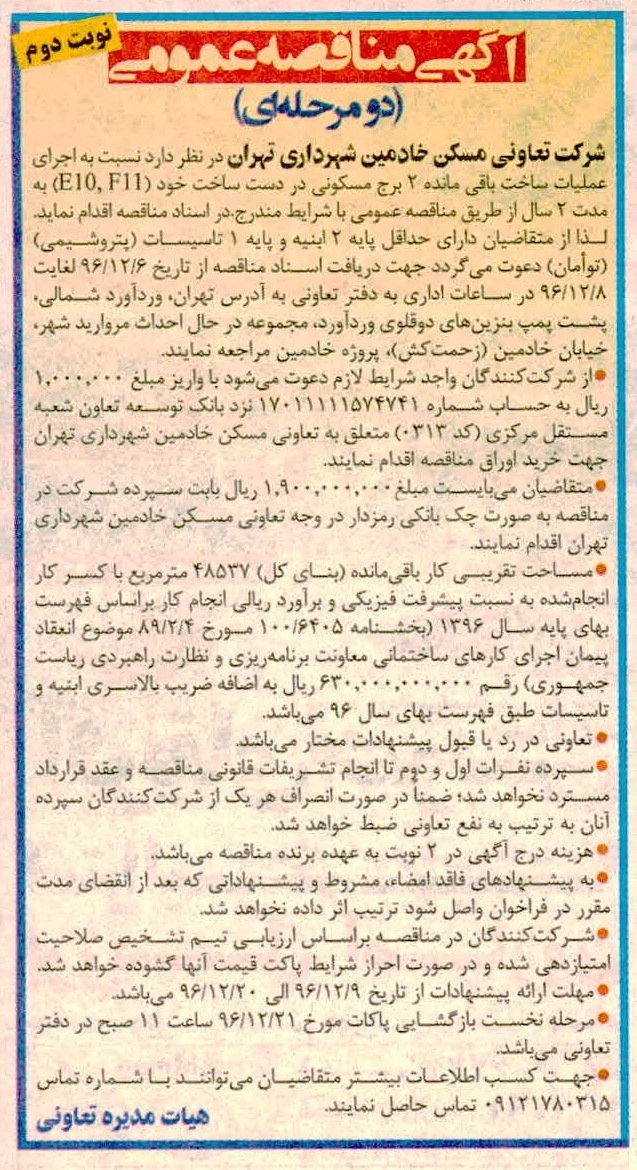 نوبت دوم
آگهی مناقصه عمومی
(دو مرحله‌ای)
شرکت تعاونی مسکن خادمین شهرداری تهران در نظر دارد نسبت به اجرای
عملیات ساخت باقی مانده ۲ برج مسکونی در دست ساخت خود (E10, F11) به
مدت ۲ سال از طریق مناقصه عمومی با شرایط مندرج.در اسناد مناقصه اقدام نماید.
لذا از متقاضیان دارای حداقل پایه ۲ ابنیه و پایه ۱ تاسیسات (پتروشیمی)
(توأمان) دعوت می‌گردد جهت دریافت اسناد مناقصه از تاریخ ۹۶/۱۲/۶ لغایت
۹۶/۱۲/۸ در ساعات اداری به دفتر تعاونی به آدرس تهران، وردآورد شمالی،
پشت پمپ بنزین‌های دوقلوی وردآورد، مجموعه در حال احداث مروارید شهر،
خیابان خادمین (زحمت‌کش)، پروژه خادمین مراجعه نمایند.
●از شرکت‌کنندگان واجد شرایط لازم دعوت می‌شود با واریز مبلغ ۱,۰۰۰,۰۰۰
ریال به حساب شماره ۱۷۰۱۱۱۱۱۵۷۴۷۴۱ نزد بانک توسعه تعاون شعبه
مستقل مرکزی (کد ۰۳۱۳) متعلق به تعاونی مسکن خادمین شهرداری تهران
جهت خرید اوراق مناقصه اقدام نمایند.
●متقاضیان می‌بایست مبلغ ۱,۹۰۰,۰۰۰,۰۰۰ ریال بابت سپرده شرکت در
مناقصه به صورت چک بانکی رمزدار در وجه تعاونی مسکن خادمین شهرداری
تهران اقدام نمایند.
●مساحت تقریبی کار باقی‌مانده (بنای کل) ۴۸۵۳۷ مترمربع با کسر کار
انجام‌شده به نسبت پیشرفت فیزیکی و برآورد ریالی انجام کار براساس فهرست
بهای پایه سال ۱۳۹۶ (بخشنامه ۱۰۰/۶۴۰۵ مورخ ۸۹/۲/۴ موضوع انعقاد
پیمان اجرای کارهای ساختمانی معاونت برنامه‌ریزی و نظارت راهبردی ریاست
جمهوری) رقم ۶۳۰,۰۰۰,۰۰۰,۰۰۰ ریال به اضافه ضریب بالاسری ابنیه و
تاسیسات طبق فهرست بهای سال ۹۶ می‌باشد.
●تعاونی در رد یا قبول پیشنهادات مختار می‌باشد.
●سپرده نفرات اول و دوم تا انجام تشریفات قانونی مناقصه و عقد قرارداد
مسترد نخواهد شد؛ ضمناً در صورت انصراف هر یک از شرکت‌کنندگان سپرده
آنان به ترتیب به نفع تعاونی ضبط خواهد شد.
●هزینه درج آگهی در ۲ نوبت به عهده برنده مناقصه می‌باشد.
●به پیشنهادهای فاقد امضاء، مشروط و پیشنهاداتی که بعد از انقضای مدت
مقرر در فراخوان واصل شود ترتیب اثر داده نخواهد شد.
●شرکت‌کنندگان در مناقصه براساس ارزیابی تیم تشخیص صلاحیت
امتیازدهی شده و در صورت احراز شرایط پاکت قیمت آنها گشوده خواهد شد.
●مهلت ارائه پیشنهادات از تاریخ ۹۶/۱۲/۹ الی ۹۶/۱۲/۲۰ می‌باشد.
●مرحله نخست بازگشایی پاکات مورخ ۹۶/۱۲/۲۱ ساعت ۱۱ صبح در دفتر
تعاونی می‌باشد.
●جهت کسب اطلاعات بیشتر متقاضیان می‌توانند با شماره تماس
۰۹۱۲۱۷۸۰۳۱۵ تماس حاصل نمایند.
هیات مدیره تعاونی